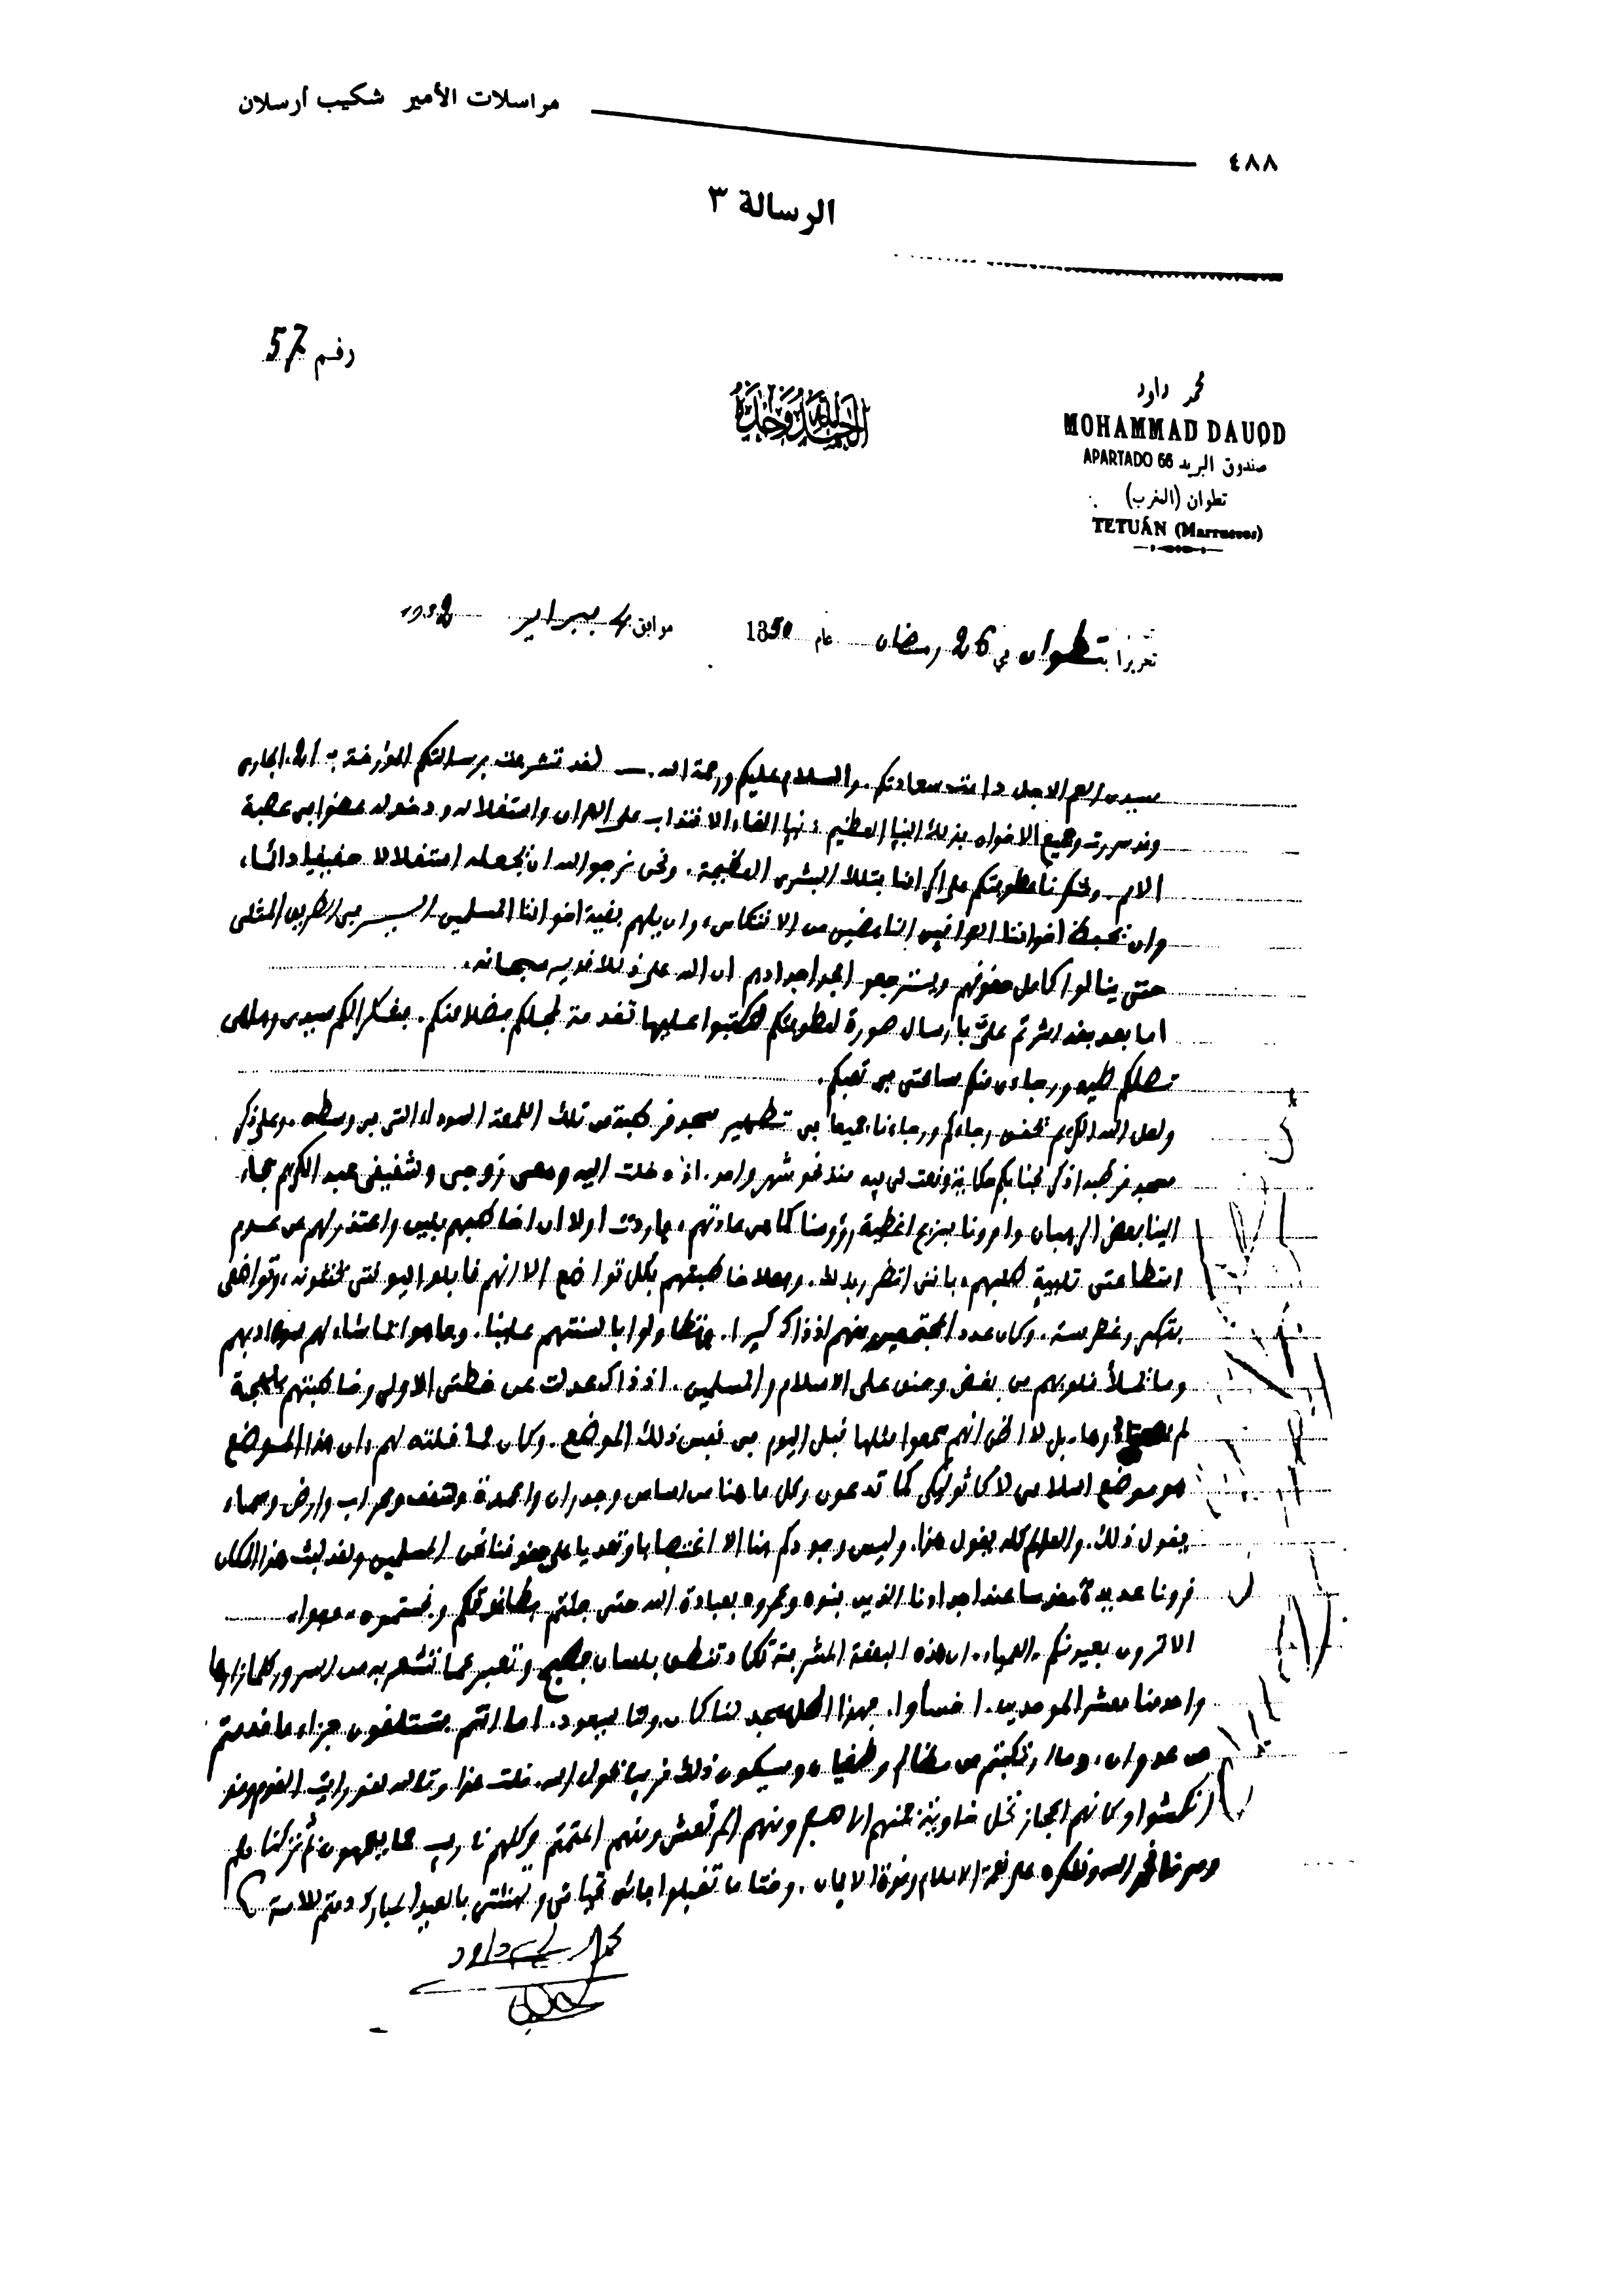 مراسلات الأمير شكيب أرسلان
٤٨٨
الرسالة ٣
رقم 57
الحمد لله وحده
محمد داود
MOHAMMAD DAUOD
APARTADO 66 صندوق البريد
تطوان (المغرب)
TETUÁN (Marruecos)
تحريرا بتطوان في 26 رمضان عام 1350 موافق 4 فبراير 1932
سيدي العم الاجل دامت سعادتكم. والسلام عليكم ورحمة الله. — لقد تشرفت برسالتكم المؤرخة بـ الجاري
وقد سررت وجميع الاخوان بذلك النبإ العظيم: نبإ الغاء الانتداب على العراق واستقلاله ودخوله عضوا في عصبة
الامم. وشكرنا عطوفتكم على اكرامنا بتلك البشرى العظيمة. ونحن نرجو الله ان يجعله استقلالا حقيقيا دائما،
وان يحفظ اخواننا العراقيين الناهضين من الانتكاس، وان يلهم بقية اخواننا المسلمين السير في الطريق المثلى
حتى ينالوا كامل حقوقهم ويسترجعوا مجد اجدادهم ان الله على ذلك قدير سبحانه.
اما بعد فقد اشرتم علي بارسال صورة لعطوفتكم لتكتبوا عليها تقدمة لمجلكم بفضلا منكم. فشكرا لكم سيدي وهاهي
تصلكم طيه ورجاءي منكم مسامحتي في تعبكم.
ولعل الله الكريم يحقق رجاءكم ورجاءنا جميعا في تطهير مسجد قرطبة من تلك اللمعة السوداء التي في وسطه. وعلى ذكر
مسجد قرطبة اذكر لجنابكم حكاية وقعت لي فيه منذ نحو شهر واحد. اذ دخلت اليه ومعي زوجي وشقيقي عبد الكريم فجاء
الينا بعض الرهبان وامرونا بنزع اغطية رؤوسنا كما هي عادتهم، فاردت اولا ان اخاطبهم بلين واعتذر لهم عن عدم
استطاعتي تلبية طلبهم، بانني اتضرر بذلك. وفعلا خاطبتهم بكل تواضع الا انهم قابلوا ليونتي بخشونة، وتواضعي
بتكبر وغطرسة. وكان عدد المجتمعين منهم اذذاك كبيرا. فتطاولوا بالسنتهم علينا. وفاهوا بما شاء لهم سوء ادبهم
وما تملأ قلوبهم من بغض وحنق على الاسلام والمسلمين. اذذاك عدلت عن خطتي الاولى وخاطبتهم بلهجة
لم بل لا اظن انهم سمعوا مثلها قبل اليوم في نفس ذلك الموضع. وكان مما قلته لهم: ان هذا الموضع
هو موضع اسلامي لا كاثوليكي كما تدعون وكل ما هنا من اساس وجدران واعمدة وسقف ومحراب وارض وسماء
يقول ذلك. والعالم كله يقول هذا. وليس وجودكم هنا الا اغتصابا وتعديا على حقوقنا نحن المسلمين ولقد لبث هذا المكان
قرونا عديدة مقدسا عند اجدادنا الذين بنوه وعمروه بعبادة الله حتى جئتم
الا ترون بعيونكم العمياء. ان هذه البقعة المشرفة تكاد تنطق بلسان فصيح وتعبر عما تشعر به من السرور كلما زارها
واحد منا معشر الموحدين. اخسأوا. فهذا المسجد لنا كان ولنا سيعود. اما انتم فستلقون جزاء ما قدمتم
من عدوان، وما ارتكبتم من مظالم وطغيان، وسيكون ذلك قريبا بحول الله. قلت هذا وتالله لقد رأيت القوم وقد
انكمشوا وكانهم اعجاز نخل خاوية فمنهم ومنهم المرتعش ومنهم المتمتم وكلهم ثم تركناهم
وصرنا نحمد الله ونشكره على نعمة الاسلام وقوة الايمان. وختاما تقبلوا فائق تحياتي وتهنئتي بالعيد المبارك ودمتم للامة
محمد داود